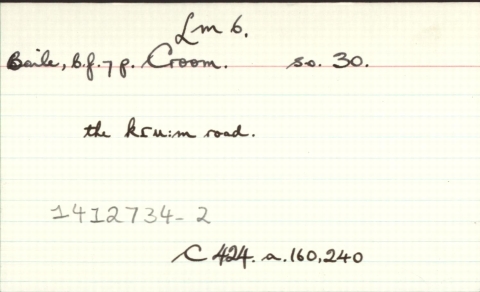 Lm 6.
Baile, b.f. ⁊ p. Croom. so. 30.
the kru:m road.
1412734-2
C 424. a. 160, 240